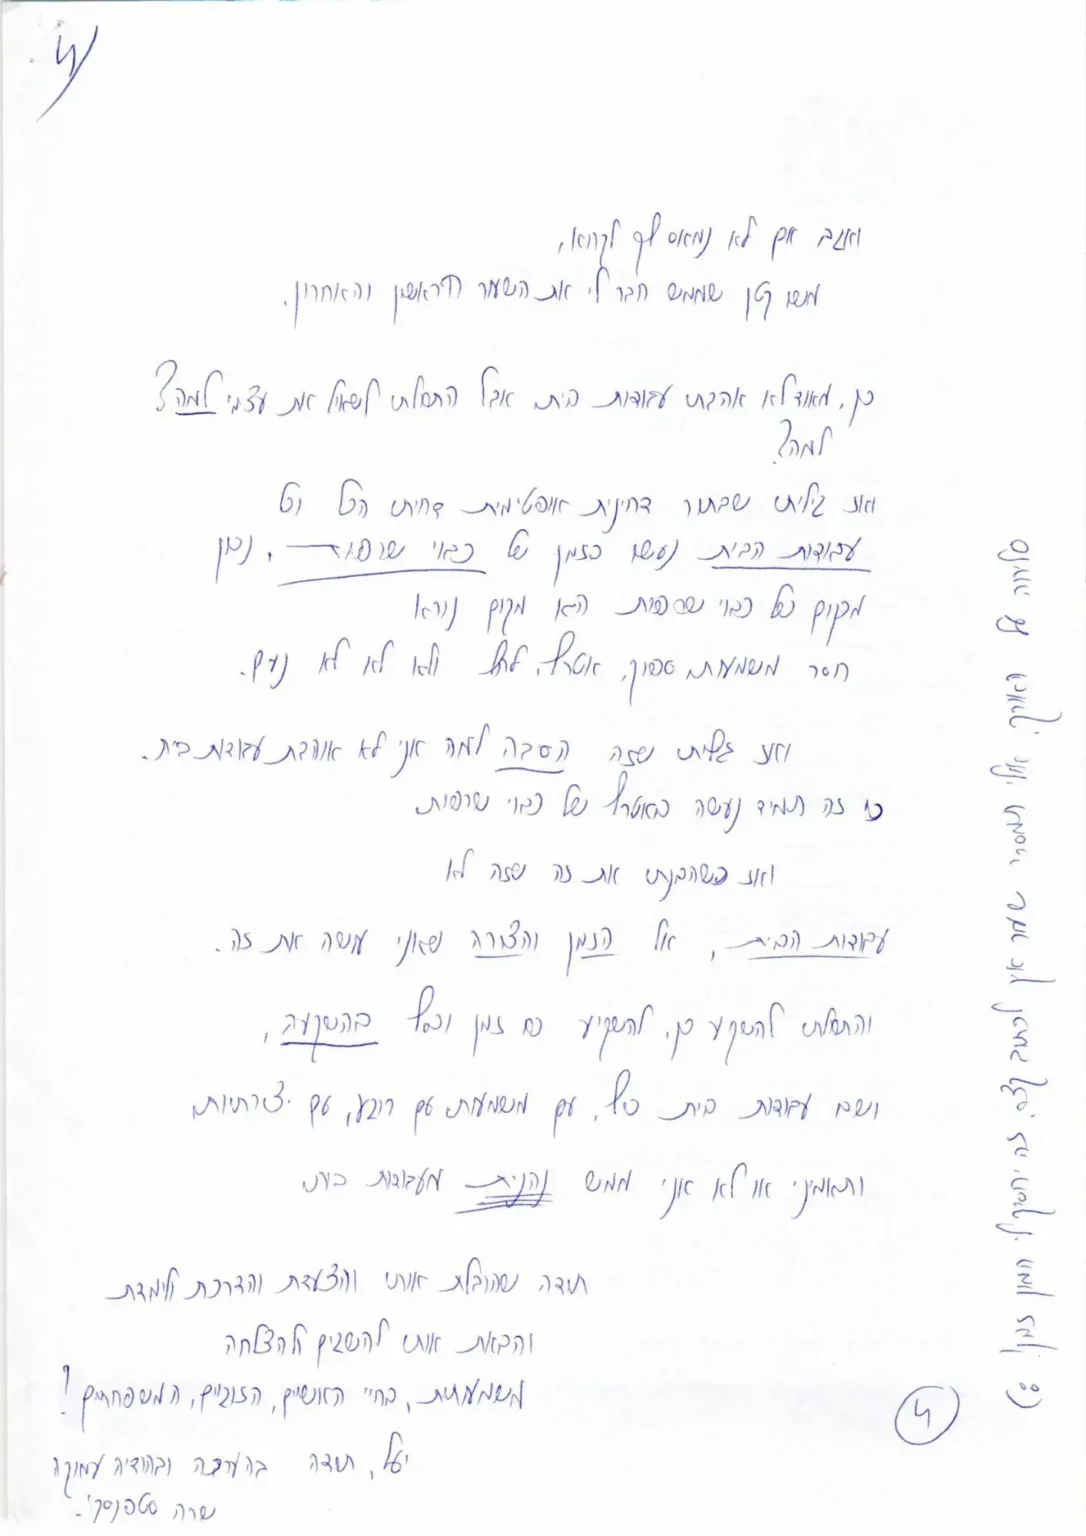 ואגב אם לא נמאס לך לקרוא,
משו קטן שממש חבר לי את השעור הראשון והאחרון.
כן, מאוד לא אהבתי עבודות בית אבל התחלתי לשאול את עצמי למה?
למה?
ואז גיליתי שבתור דחינית אופטימית דחיתי הכל וכל
עבודות הבית נעשו בזמן של כבוי שרפות, נכון
מקום של כבוי שרפות הוא מקום נורא
חסר משמעות, סיפוק, אטרף, לחץ ולא לא לא נעים.
ואז גליתי שזה הסבה למה אני לא אוהבת עבודות בית.
כי זה תמיד נעשה באטרף של כבוי שרפות
ואז כשהבנתי את זה שזה לא
עבודות הבית, אלא הזמן והצורה שאני עושה את זה.
והתחלתי להשקיע כן, להשקיע בזה זמן וכסף בהשקעה,
ושבו עבודות בית כיף, עם משמעות עם רוגע, עם יצרתיות
ותאמיני או לא אני ממש נהנית מעבודות בית
תודה שהובלת אותי והצעדת והדרכת ולימדת
והבאת אותי להשגים ולהצלחה
משמעותית, בחיי האישיים, הזוגיים, המשפחתים!
יעל, תודה בהערכה ובהודיה עמוקה
שרה סטפנסקי.
4
סליחה על האורך, אולי תמסרי שעור איך לכתוב קצר. זה יחסוך לי המון זמן :)